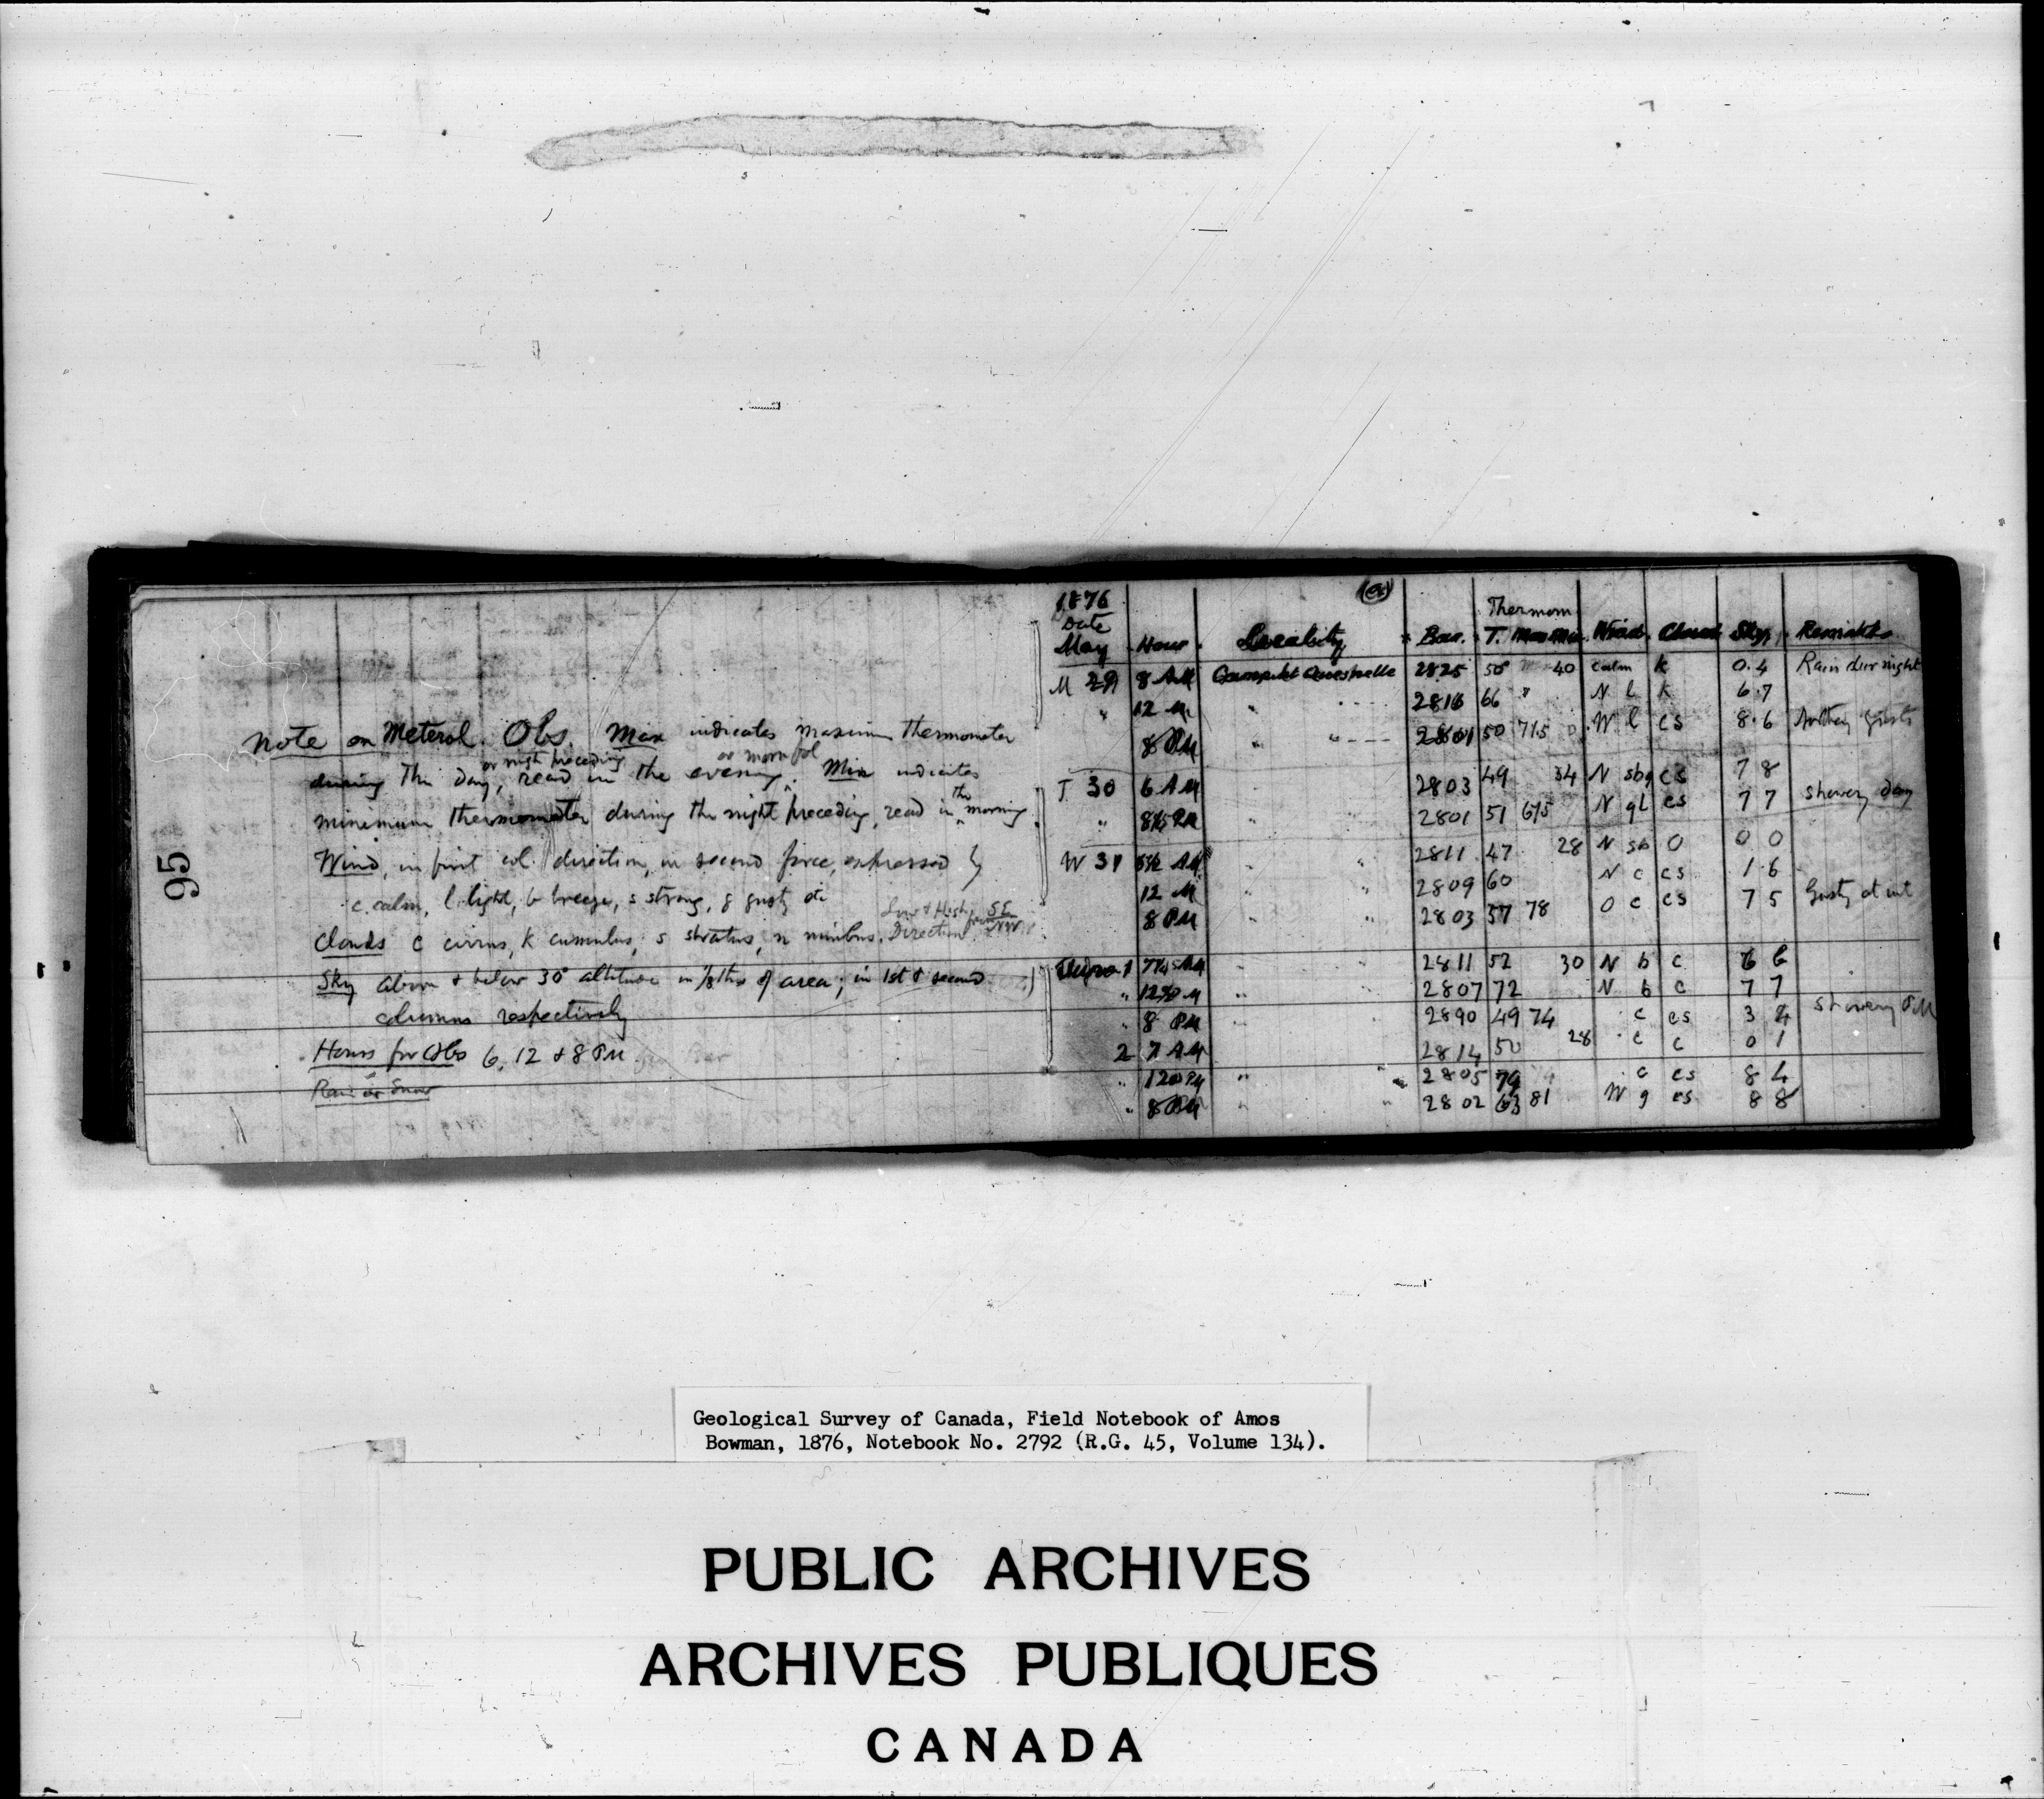 95
Note on Meterol. Obs. Max indicates maximum thermometer
or night preceding
during the day, read in the evening. Min indicates
minimum thermometer during the night preceding, read in the morning
Wind, in first col. direction, in second force, expressed by
c. calm, l. light, b breeze, s strong, g gusty etc
Low & High
Clouds c cirrus, K cumulus, s stratus, n nimbus. Direction from SE NW
Sky above & below 30° altitude in 1/8ths of area; in 1st & second
columns respectively
Hours for Obs 6, 12 & 8 PM
Rain or Snow
1876
Date Thermom
May Hour Locality Bar. T. Max Min Wind. Cloud Sky. Remarks
M 29 8 AM Quesnelle 2825 50 40 calm K 0.4 Rain dur night
" 12 M " 2816 66 " N l K 6.7
8 PM " " 2801 50 71.5 W l cs 8.6 gusts
T 30 6 AM 2803 49 34 N sbg cs 7 8
" 8½ PM 2801 51 615 N gl cs 7 7 showery day
W 31 5½ AM " 2811 47 28 N sb O 0 0
12 M " " 2809 60 N c cs 1.6
8 PM " " 2803 57 78 O c cs 7 5 Gusty at int
1 7¼ AM " " 2811 52 30 N b c 6 6
" 12 M " 2807 72 N b c 7 7
" 8 PM " 2890 49 74 c cs 3 4 showery PM
2 7 AM 2814 50 28 c c 0 1
" 12 PM " " 2805 79 c cs 8 4
" 8 PM " " 2802 63 81 W g cs 8 8
Geological Survey of Canada, Field Notebook of Amos
Bowman, 1876, Notebook No. 2792 (R.G. 45, Volume 134).
PUBLIC ARCHIVES
ARCHIVES PUBLIQUES
CANADA